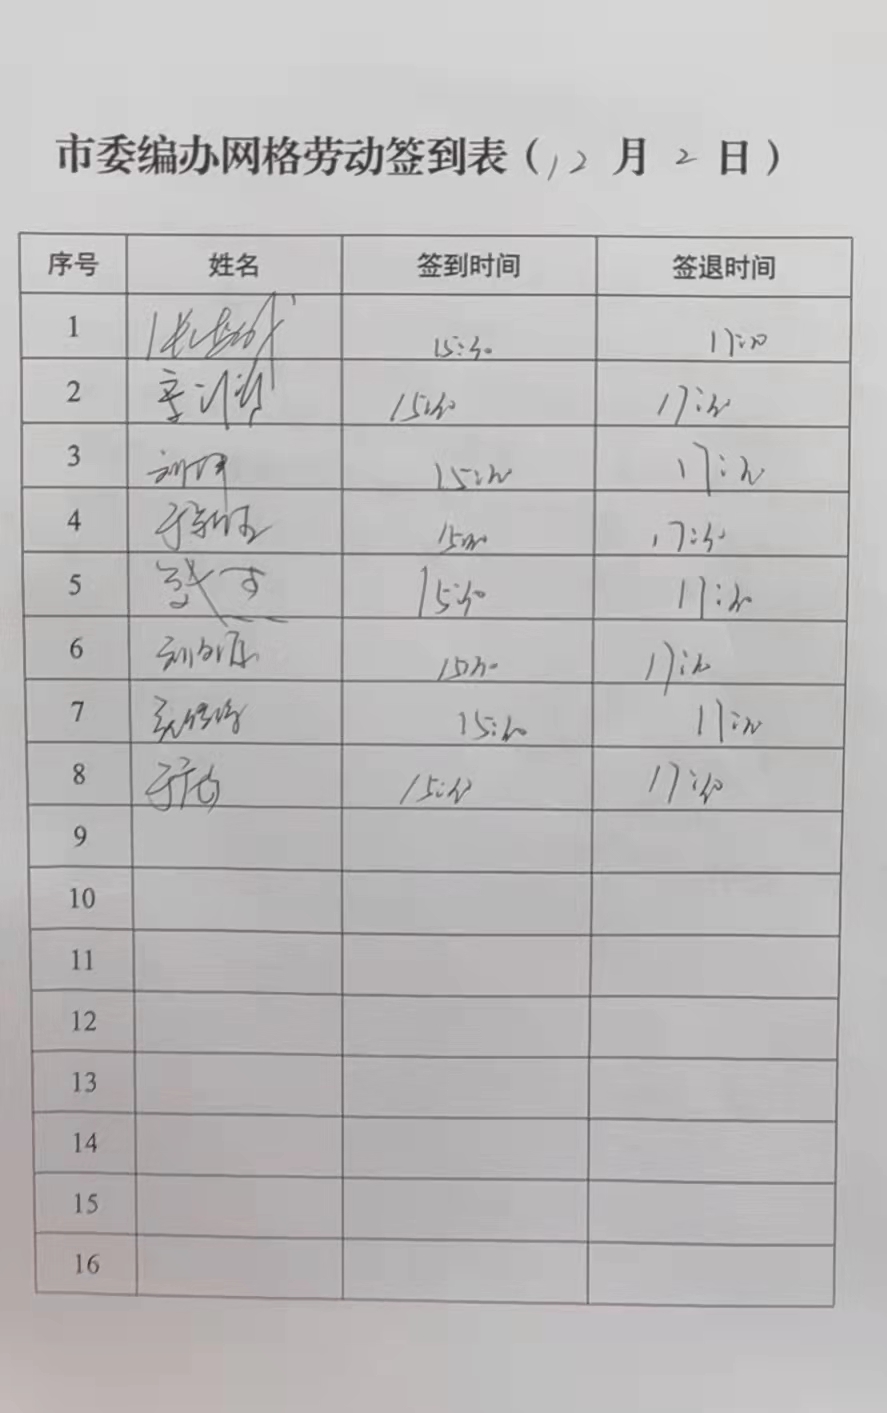 市委编办网格劳动签到表（12月2日）
序号 姓名 签到时间 签退时间
1 15:30 17:30
2 15:30 17:30
3 15:30 17:30
4 15:30 17:30
5 15:30 17:30
6 15:30 17:30
7 15:30 17:30
8 15:30 17:30
9
10
11
12
13
14
15
16